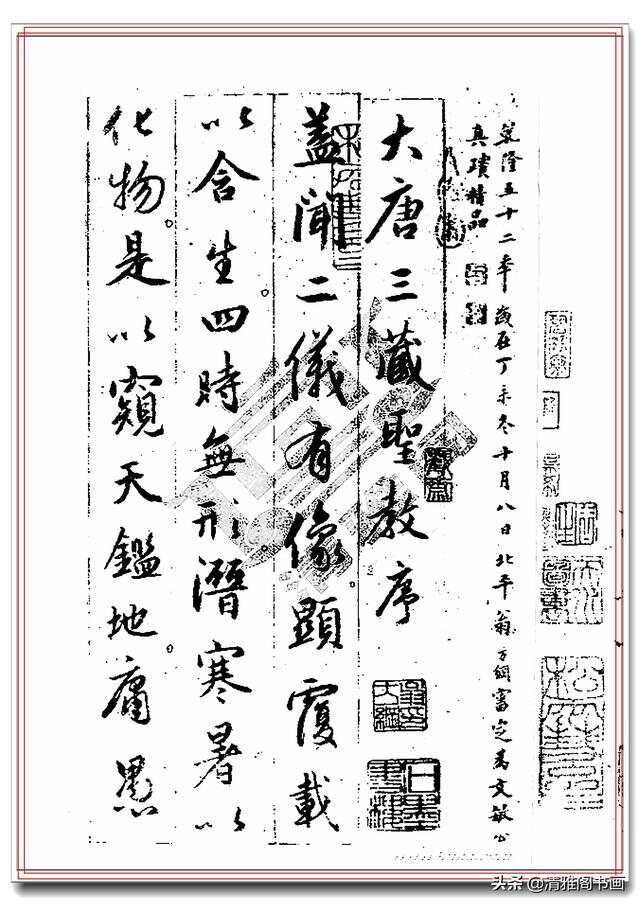 乾隆五十二年歲在丁未冬十月八日北平翁方綱審定為文敏公
真蹟精品
大唐三藏聖教序
盖聞二儀有像顯覆載
以含生四時無形潛寒暑以
化物是以窺天鑑地庸愚
头条 @清雅阁书画